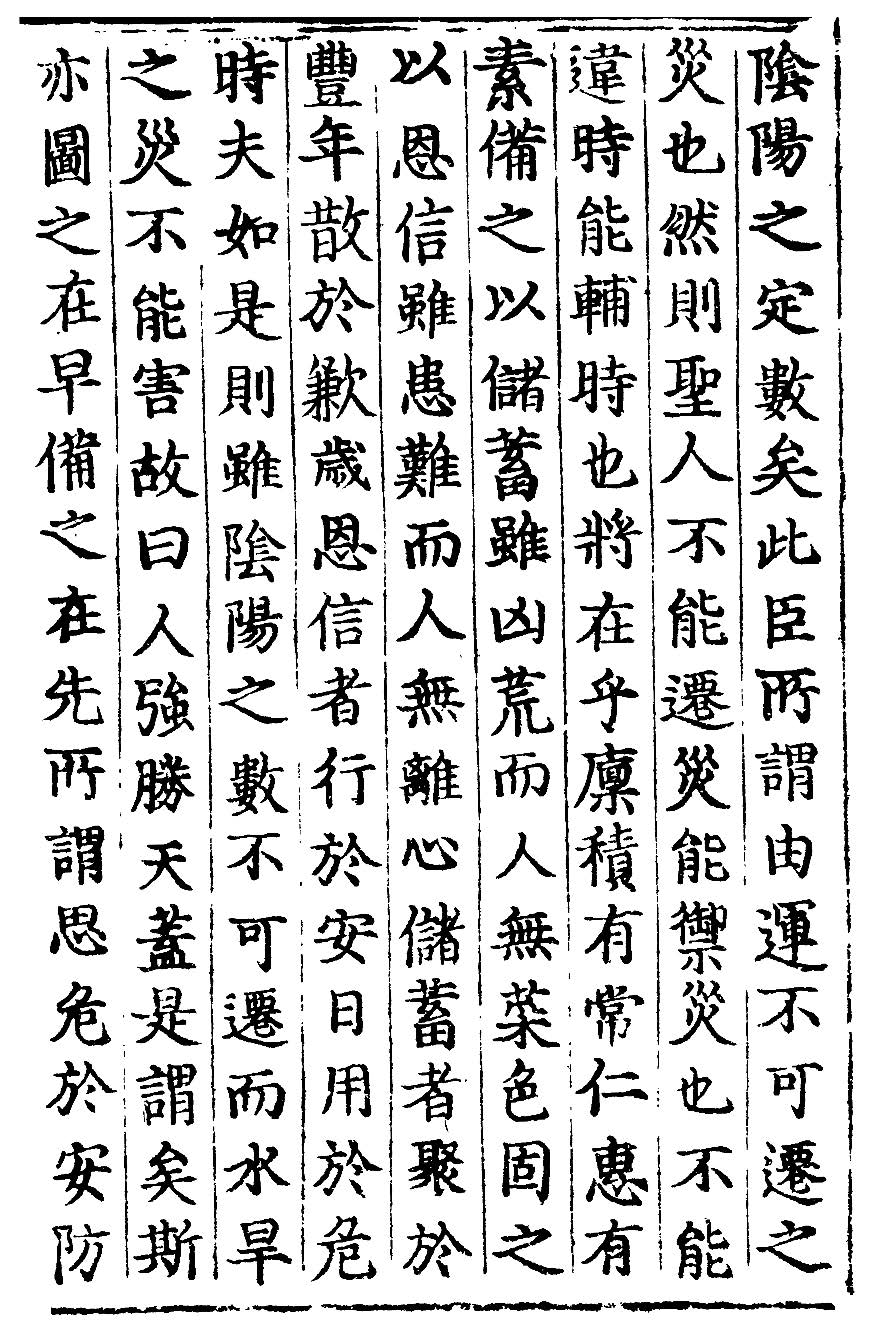 陰陽之定數矣此臣所謂由運不可遷之
災也然則聖人不能遷災能禦災也不能
違時能輔時也將在乎廩積有常仁惠有
素備之以儲蓄雖凶荒而人無菜色固之
以恩信雖患難而人無離心儲蓄者聚於
豐年散於歉歲恩信者行於安日用於危
時夫如是則雖陰陽之數不可遷而水旱
之災不能害故曰人強勝天蓋是謂矣斯
亦圖之在早備之在先所謂思危於安防